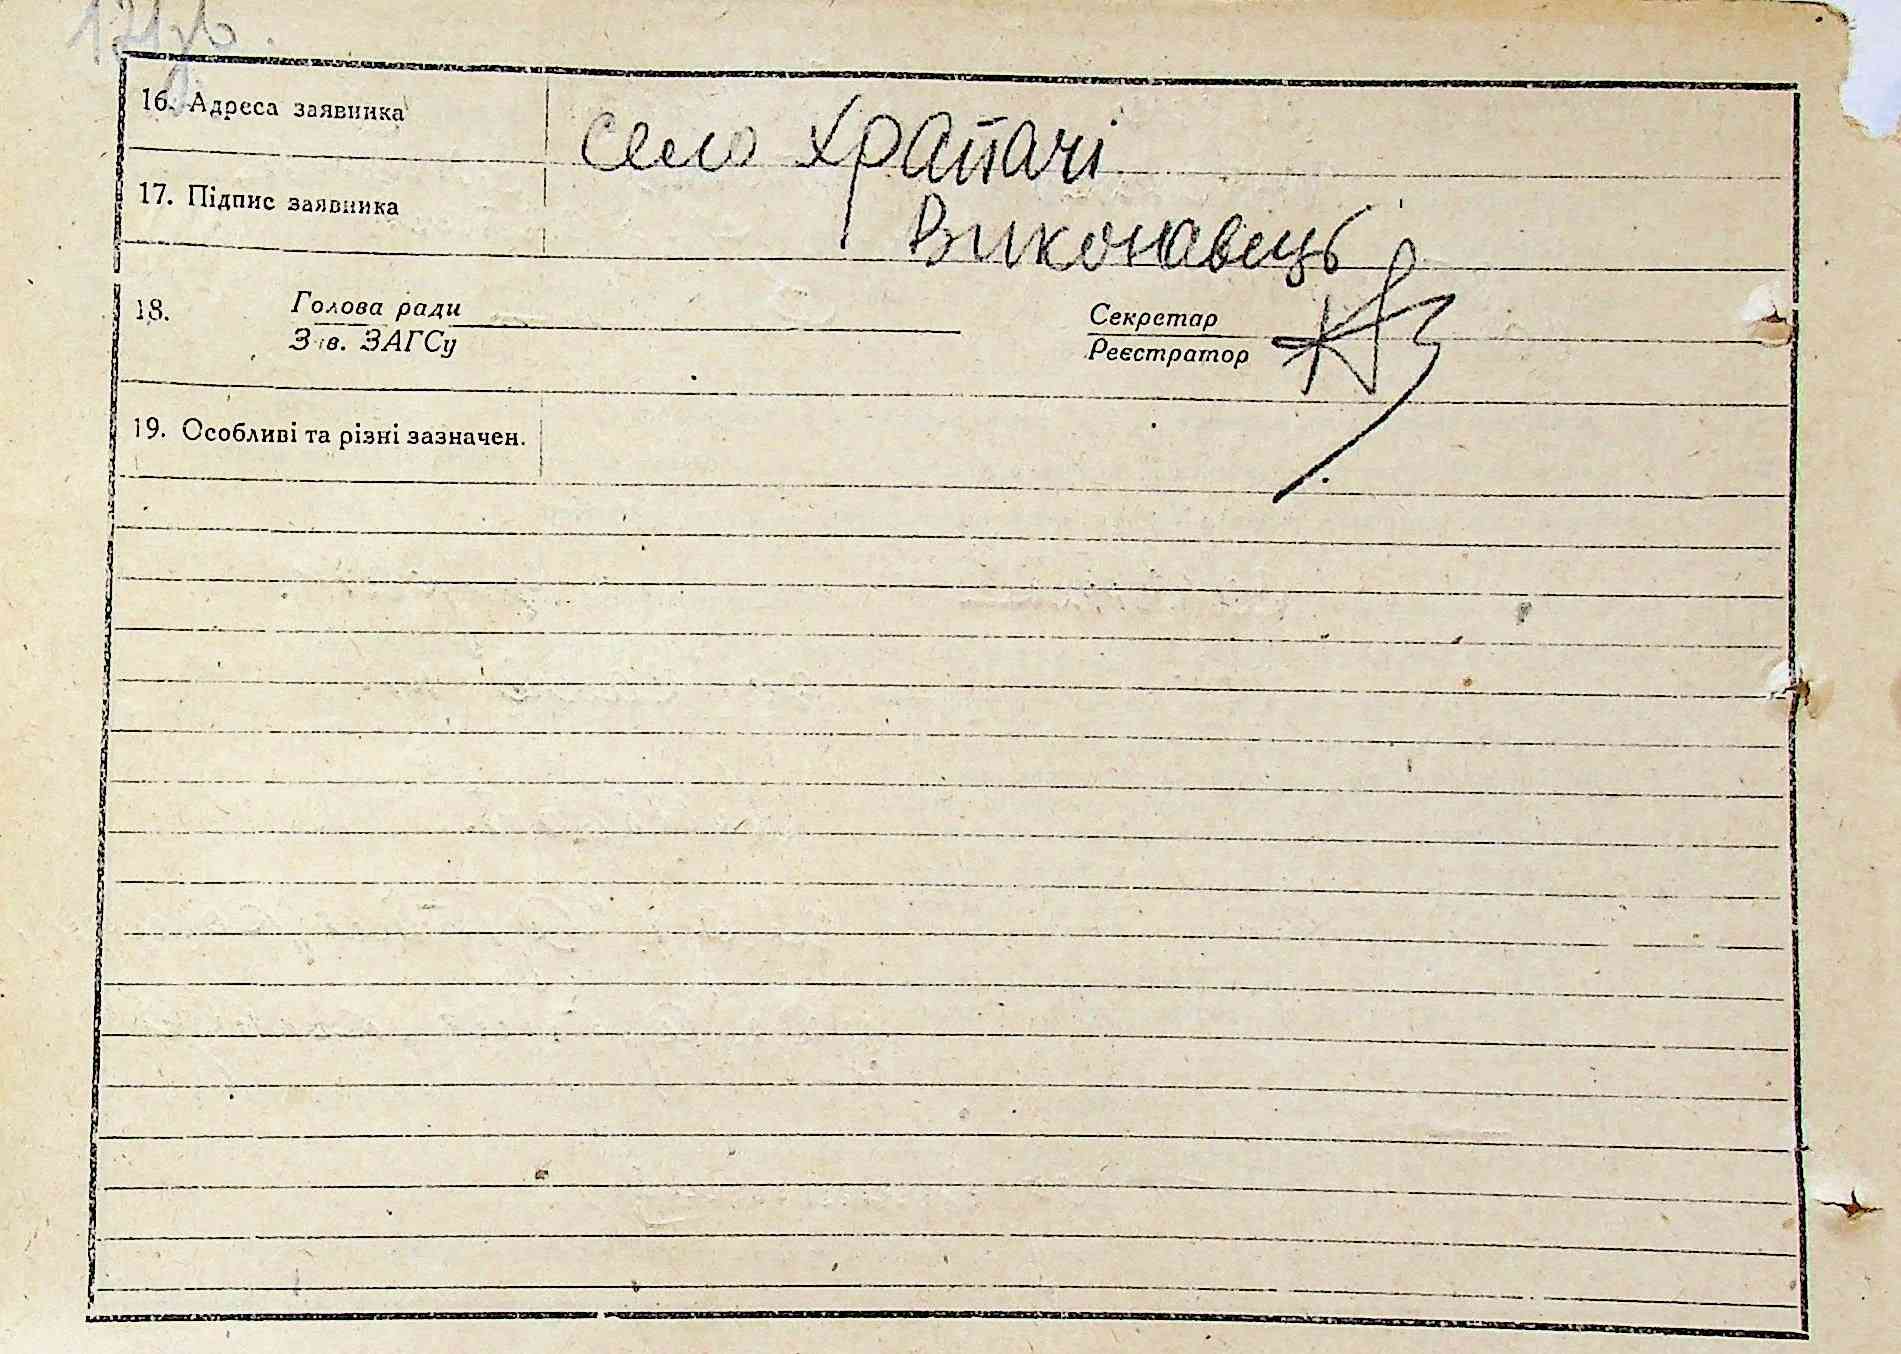 16. Адреса заявника село Храпачі
17. Підпис заявника Виконавець
18. Голова ради Секретар
Зав. ЗАГСу Реєстратор
19. Особливі та різні зазначен.